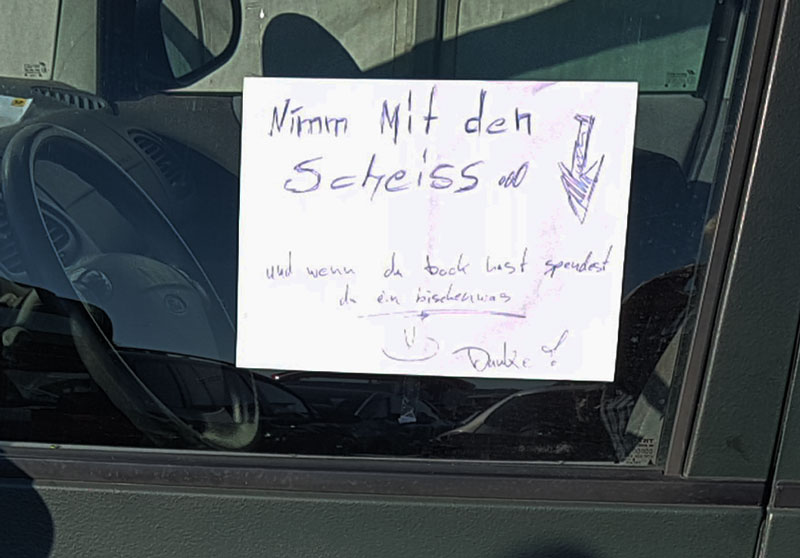 Nimm Mit den
Scheiss...
und wenn du bock hast spendest
du ein bischenwas
Danke!